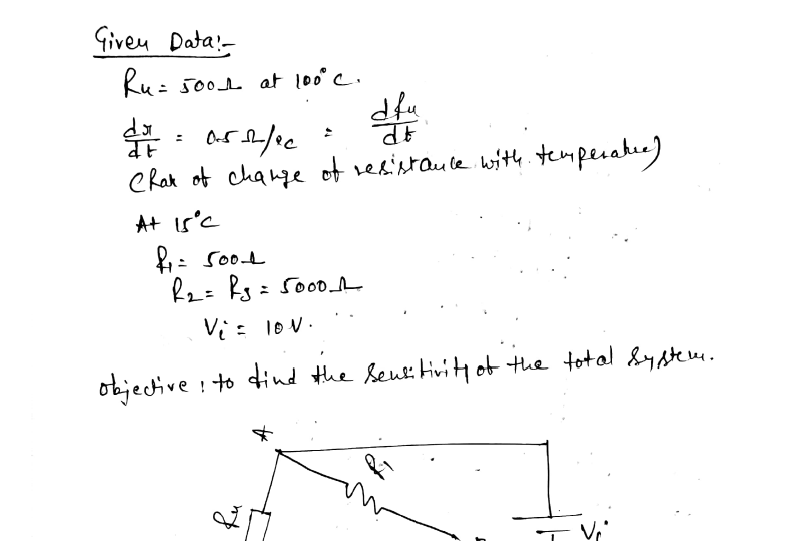 Given Data:-
Ru = 500Ω at 100°C.
dr/dt = 0.5 Ω/°C = dRu/dt
(Rate of change of resistance with temperature)
At 15°C
R1 = 500Ω
R2 = R3 = 5000Ω
Vi = 10V.
Objective : to find the sensitivity of the total system.
R1
Vi